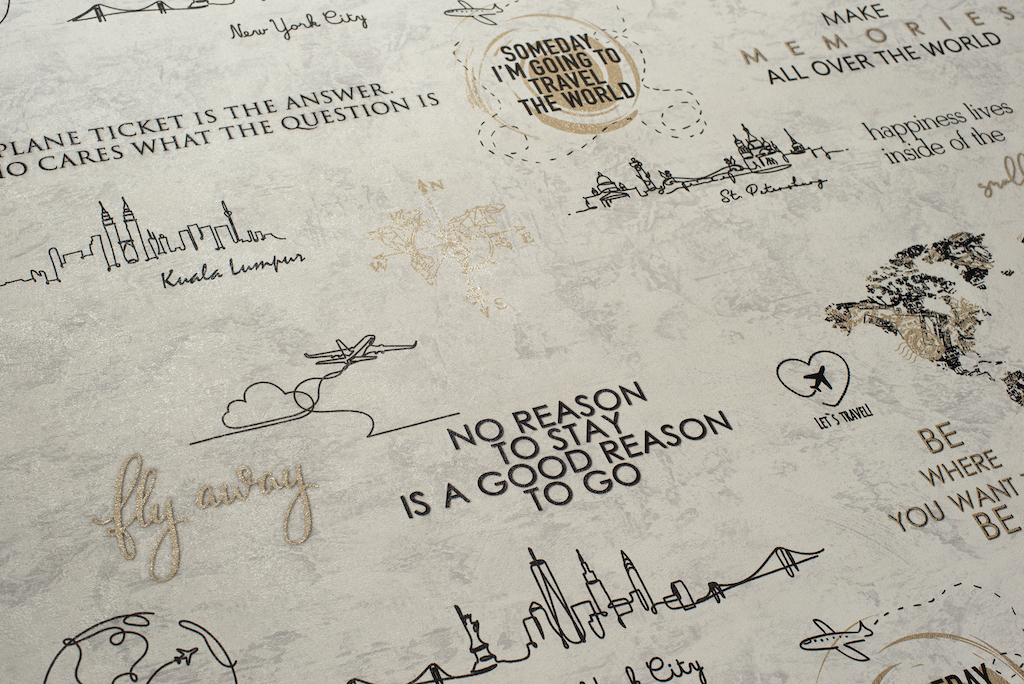 New York City
SOMEDAY
I'M GOING TO
TRAVEL
THE WORLD
MAKE
MEMORIES
ALL OVER THE WORLD
PLANE TICKET IS THE ANSWER.
CARES WHAT THE QUESTION IS
happiness lives
inside of the
St. Petersburg
N
W
E
S
Kuala Lumpur
LET'S TRAVEL!
NO REASON
TO STAY
IS A GOOD REASON
TO GO
BE
WHERE
YOU WANT
BE
fly away
City